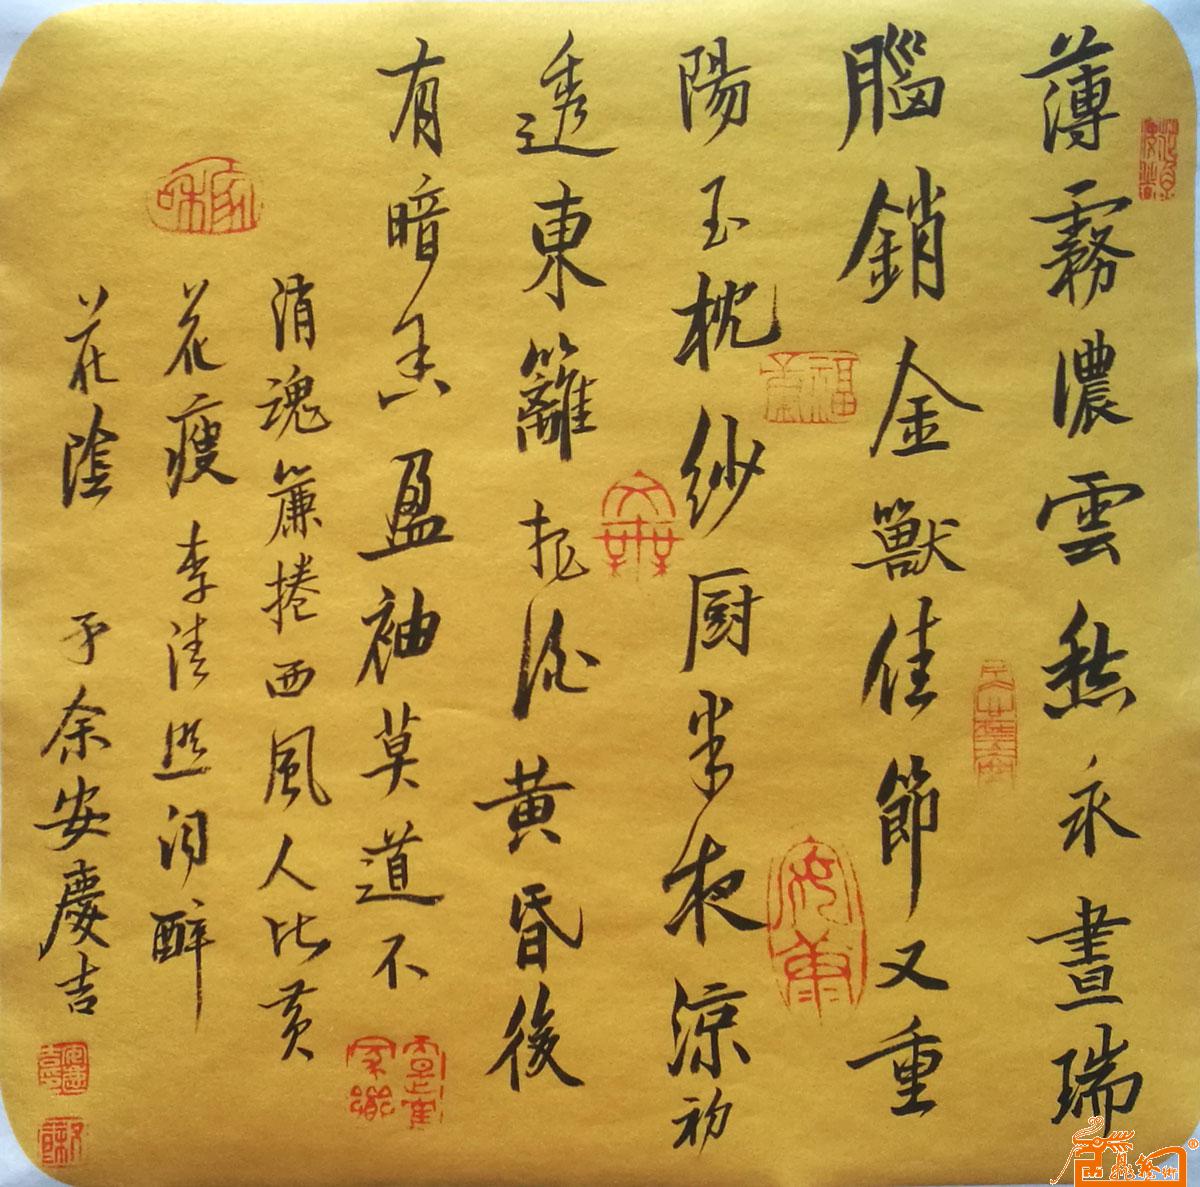 薄霧濃雲愁永晝瑞
腦銷金獸佳節又重
陽玉枕紗厨半夜涼初
透東籬把酒黃昏後
有暗香盈袖莫道不
消魂簾捲西風人比黃
花瘦李清照詞醉
花陰 余安慶吉
家和